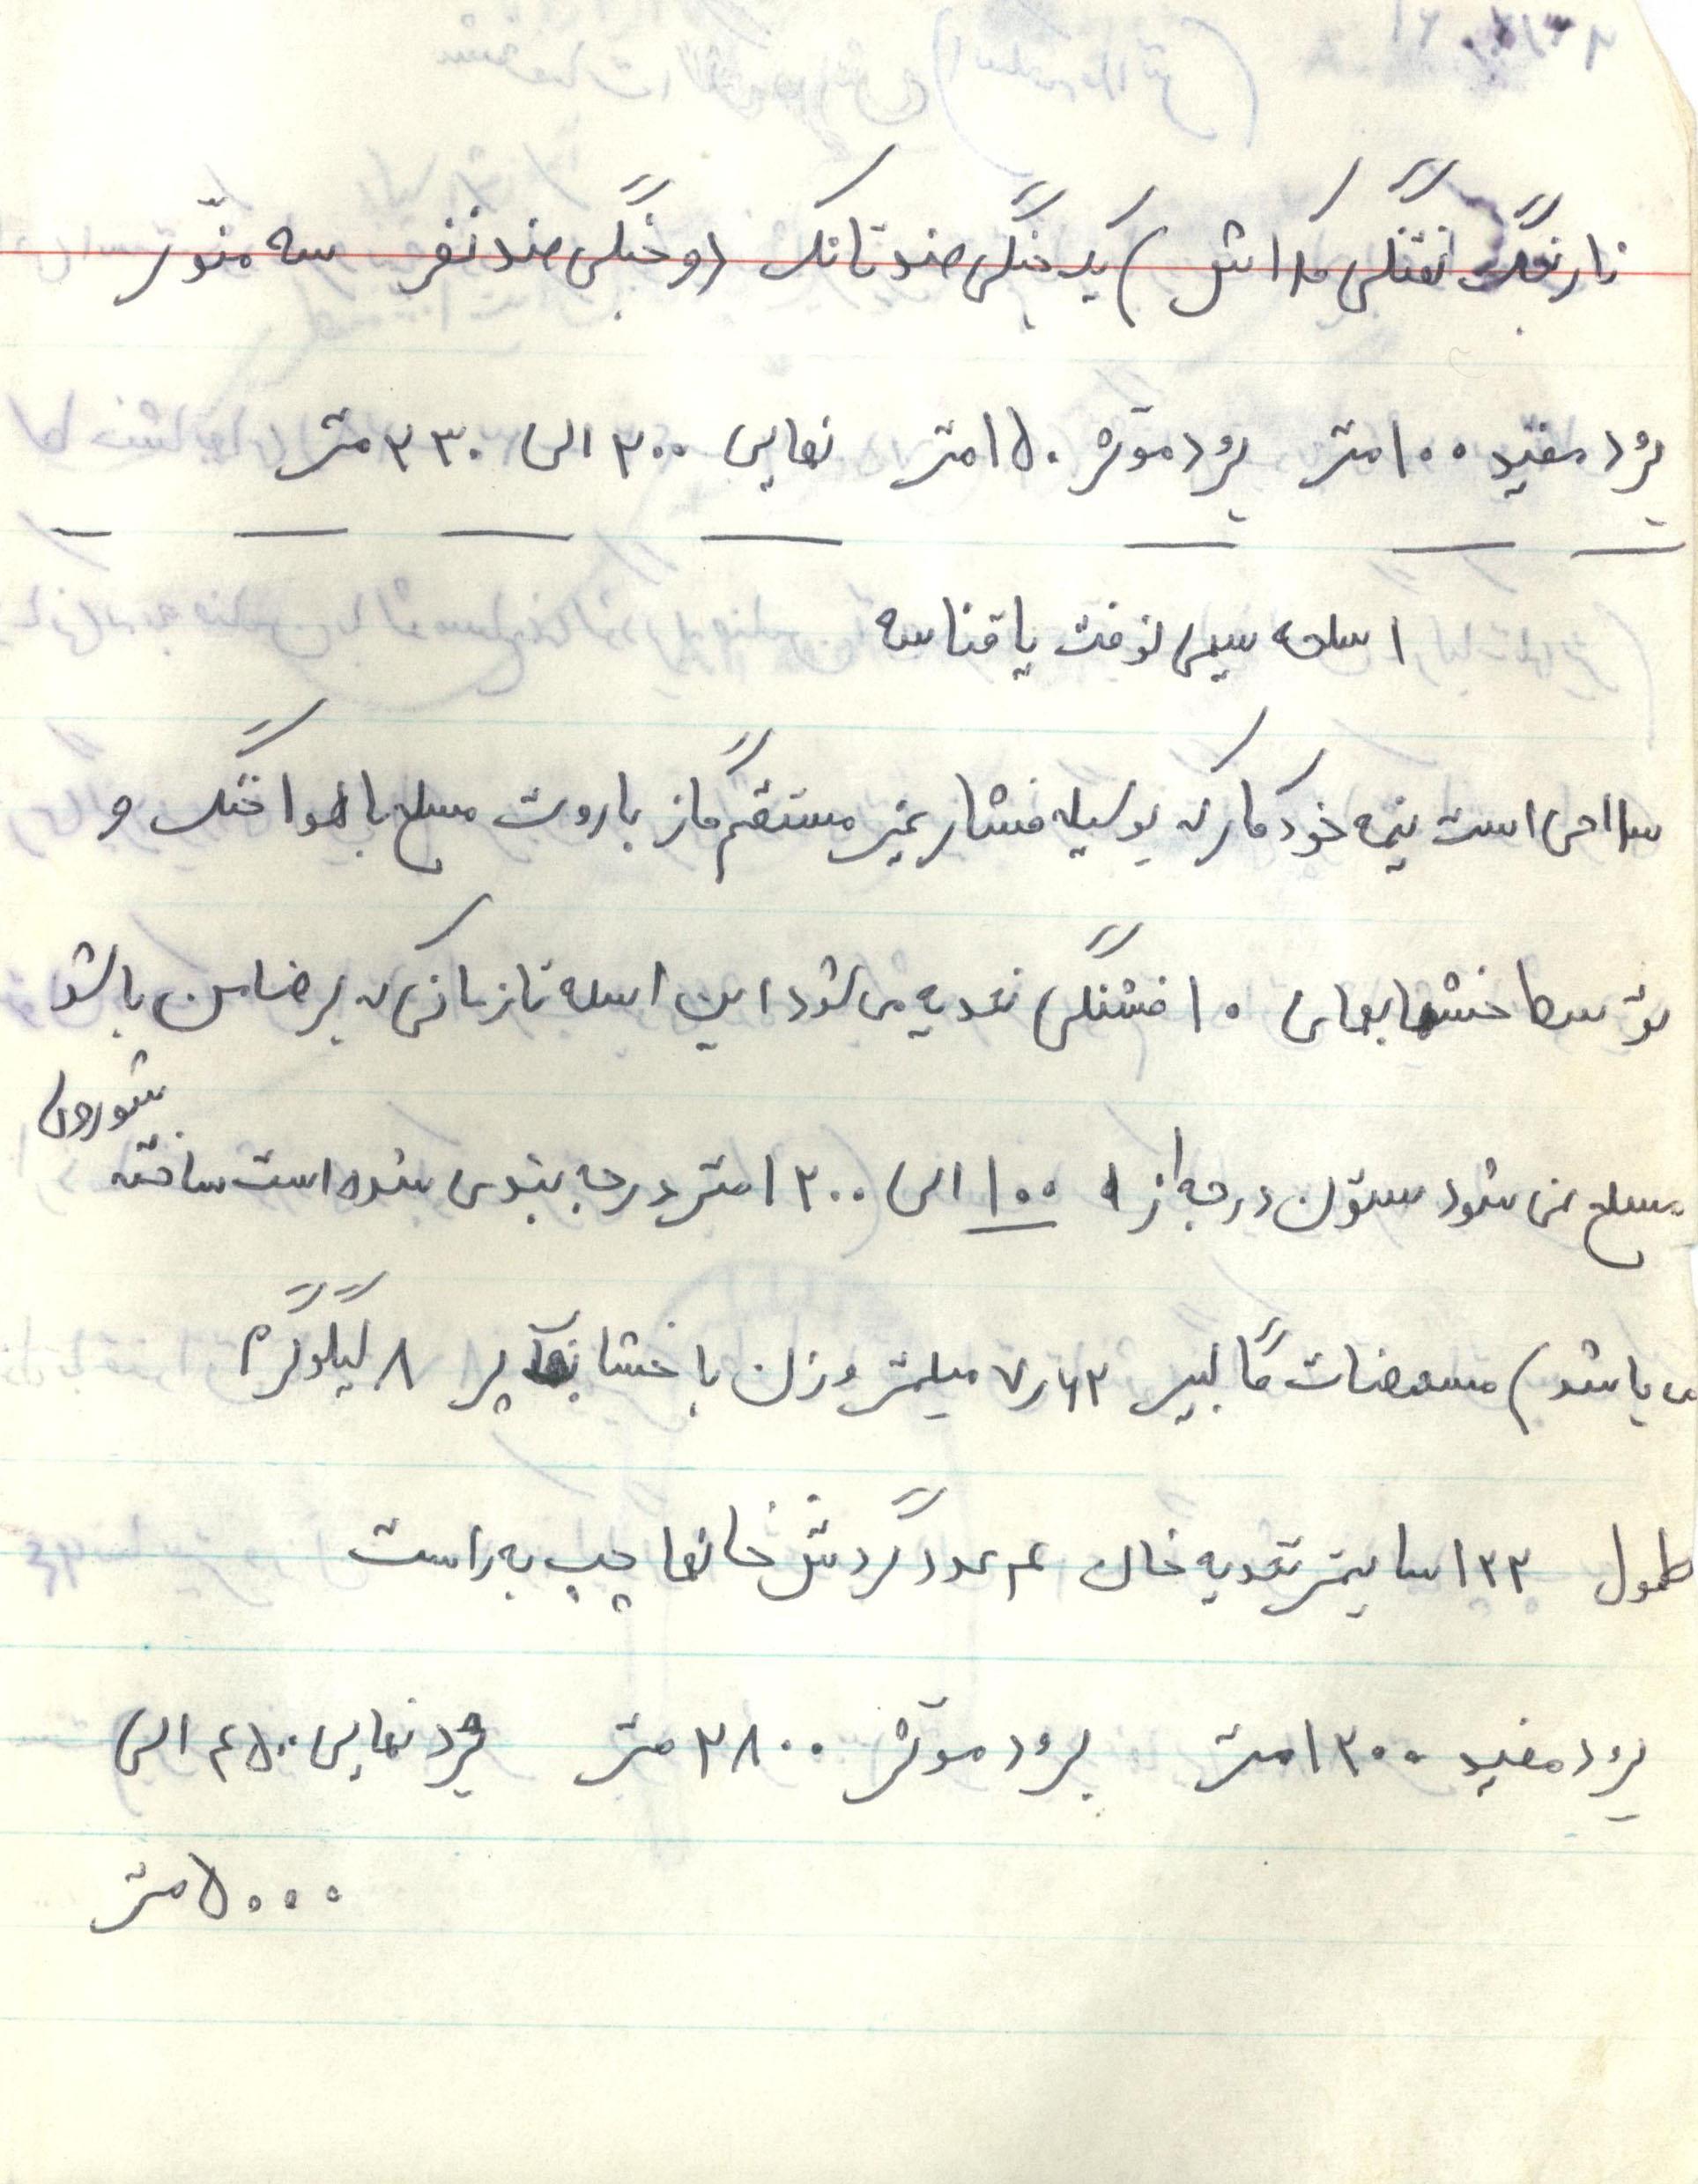 نارنجک تفنگی کلاش) یک جنگی ضد تانک (دو جنگی ضد نفر سه منور
برد مفید ۱۰۰ متر برد موثر ۱۵۰ متر نهایی ۳۰۰ الی ۳۳۰ متر
اسلحه سیمی نوفت یا قناسه
سلاحی است نیمه خودکار که بوسیله فشار غیر مستقیم گاز باروت مسلح با هوا خنک و
توسط خشابهای ۱۰ فشنگی تغدیه می شود این اسلحه تا زمانی که بر ضامن باشد
مسلح نمی شود ستون درجه از ۱۰۰ الی ۱۳۰۰ متر درجه بندی شده است ساخته شوروی
می باشد) مشخصات کالیبر ۷٫۶۲ میلمتر وزن با خشاب پر ۸ کیلوگرم
طول ۱۲۳ سانیمتر تعدیه خان ۴ عدد گردش خانها چپ به راست
برد مفید ۱۳۰۰ متر برد موثر ۳۸۰۰ متر برد نهایی ۴۵۰۰ الی
۵۰۰۰ متر